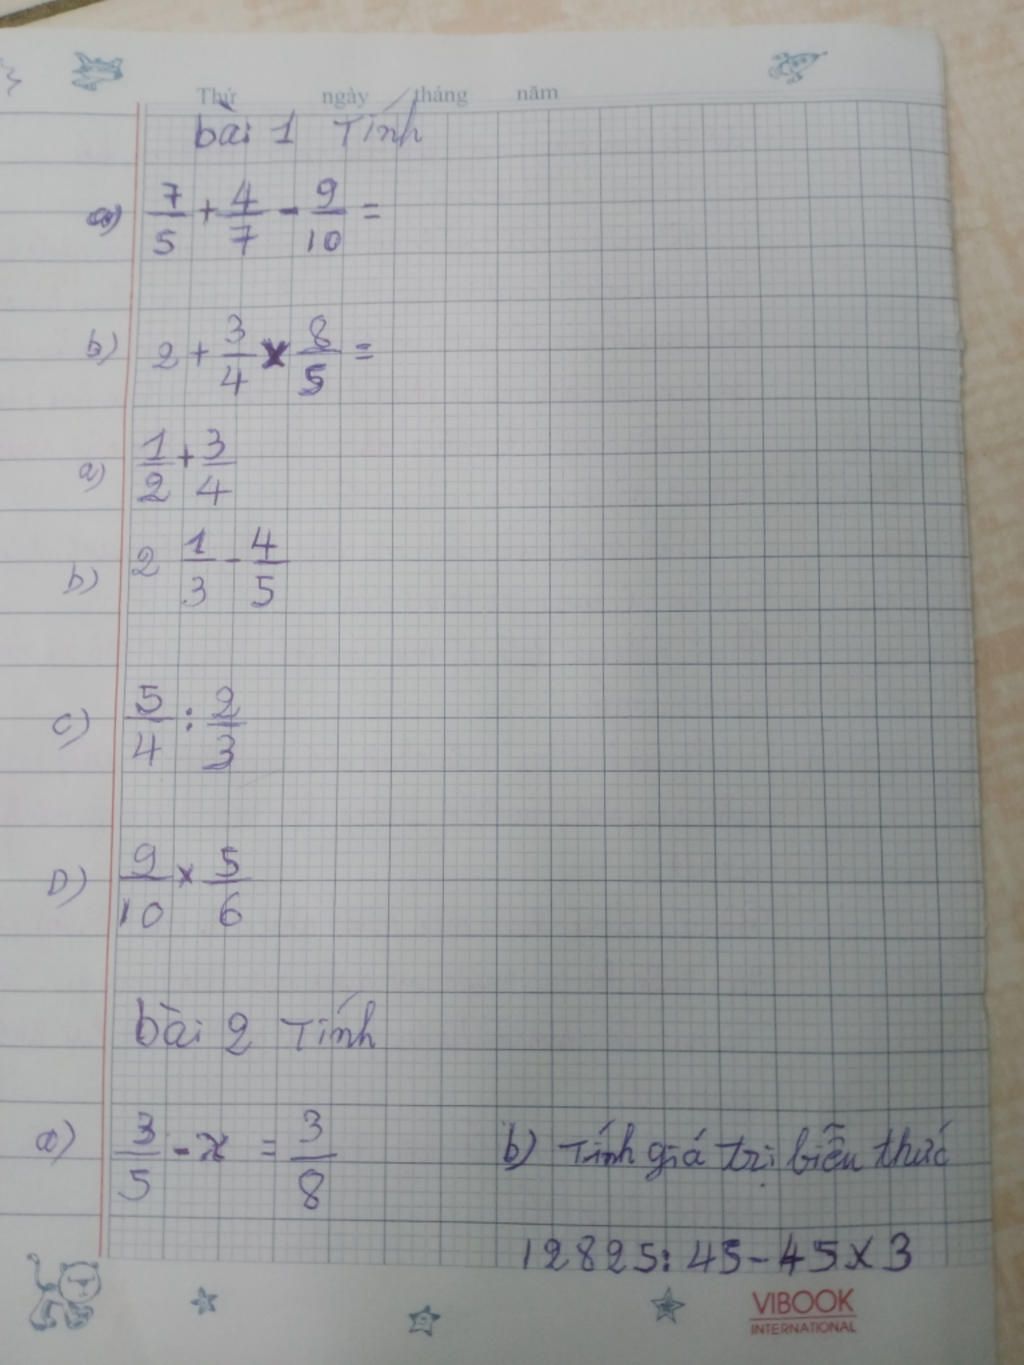 Thứ ngày tháng năm
bài 1 Tính
a) 7/5 + 4/7 - 9/10 =
b) 2 + 3/4 x 8/5 =
a) 1/2 + 3/4
b) 2 1/3 - 4/5
c) 5/4 : 2/3
D) 9/10 x 5/6
bài 2 Tính
a) 3/5 - x = 3/8
b) Tính giá trị biểu thức
12825 : 45 - 45 x 3
VIBOOK
INTERNATIONAL